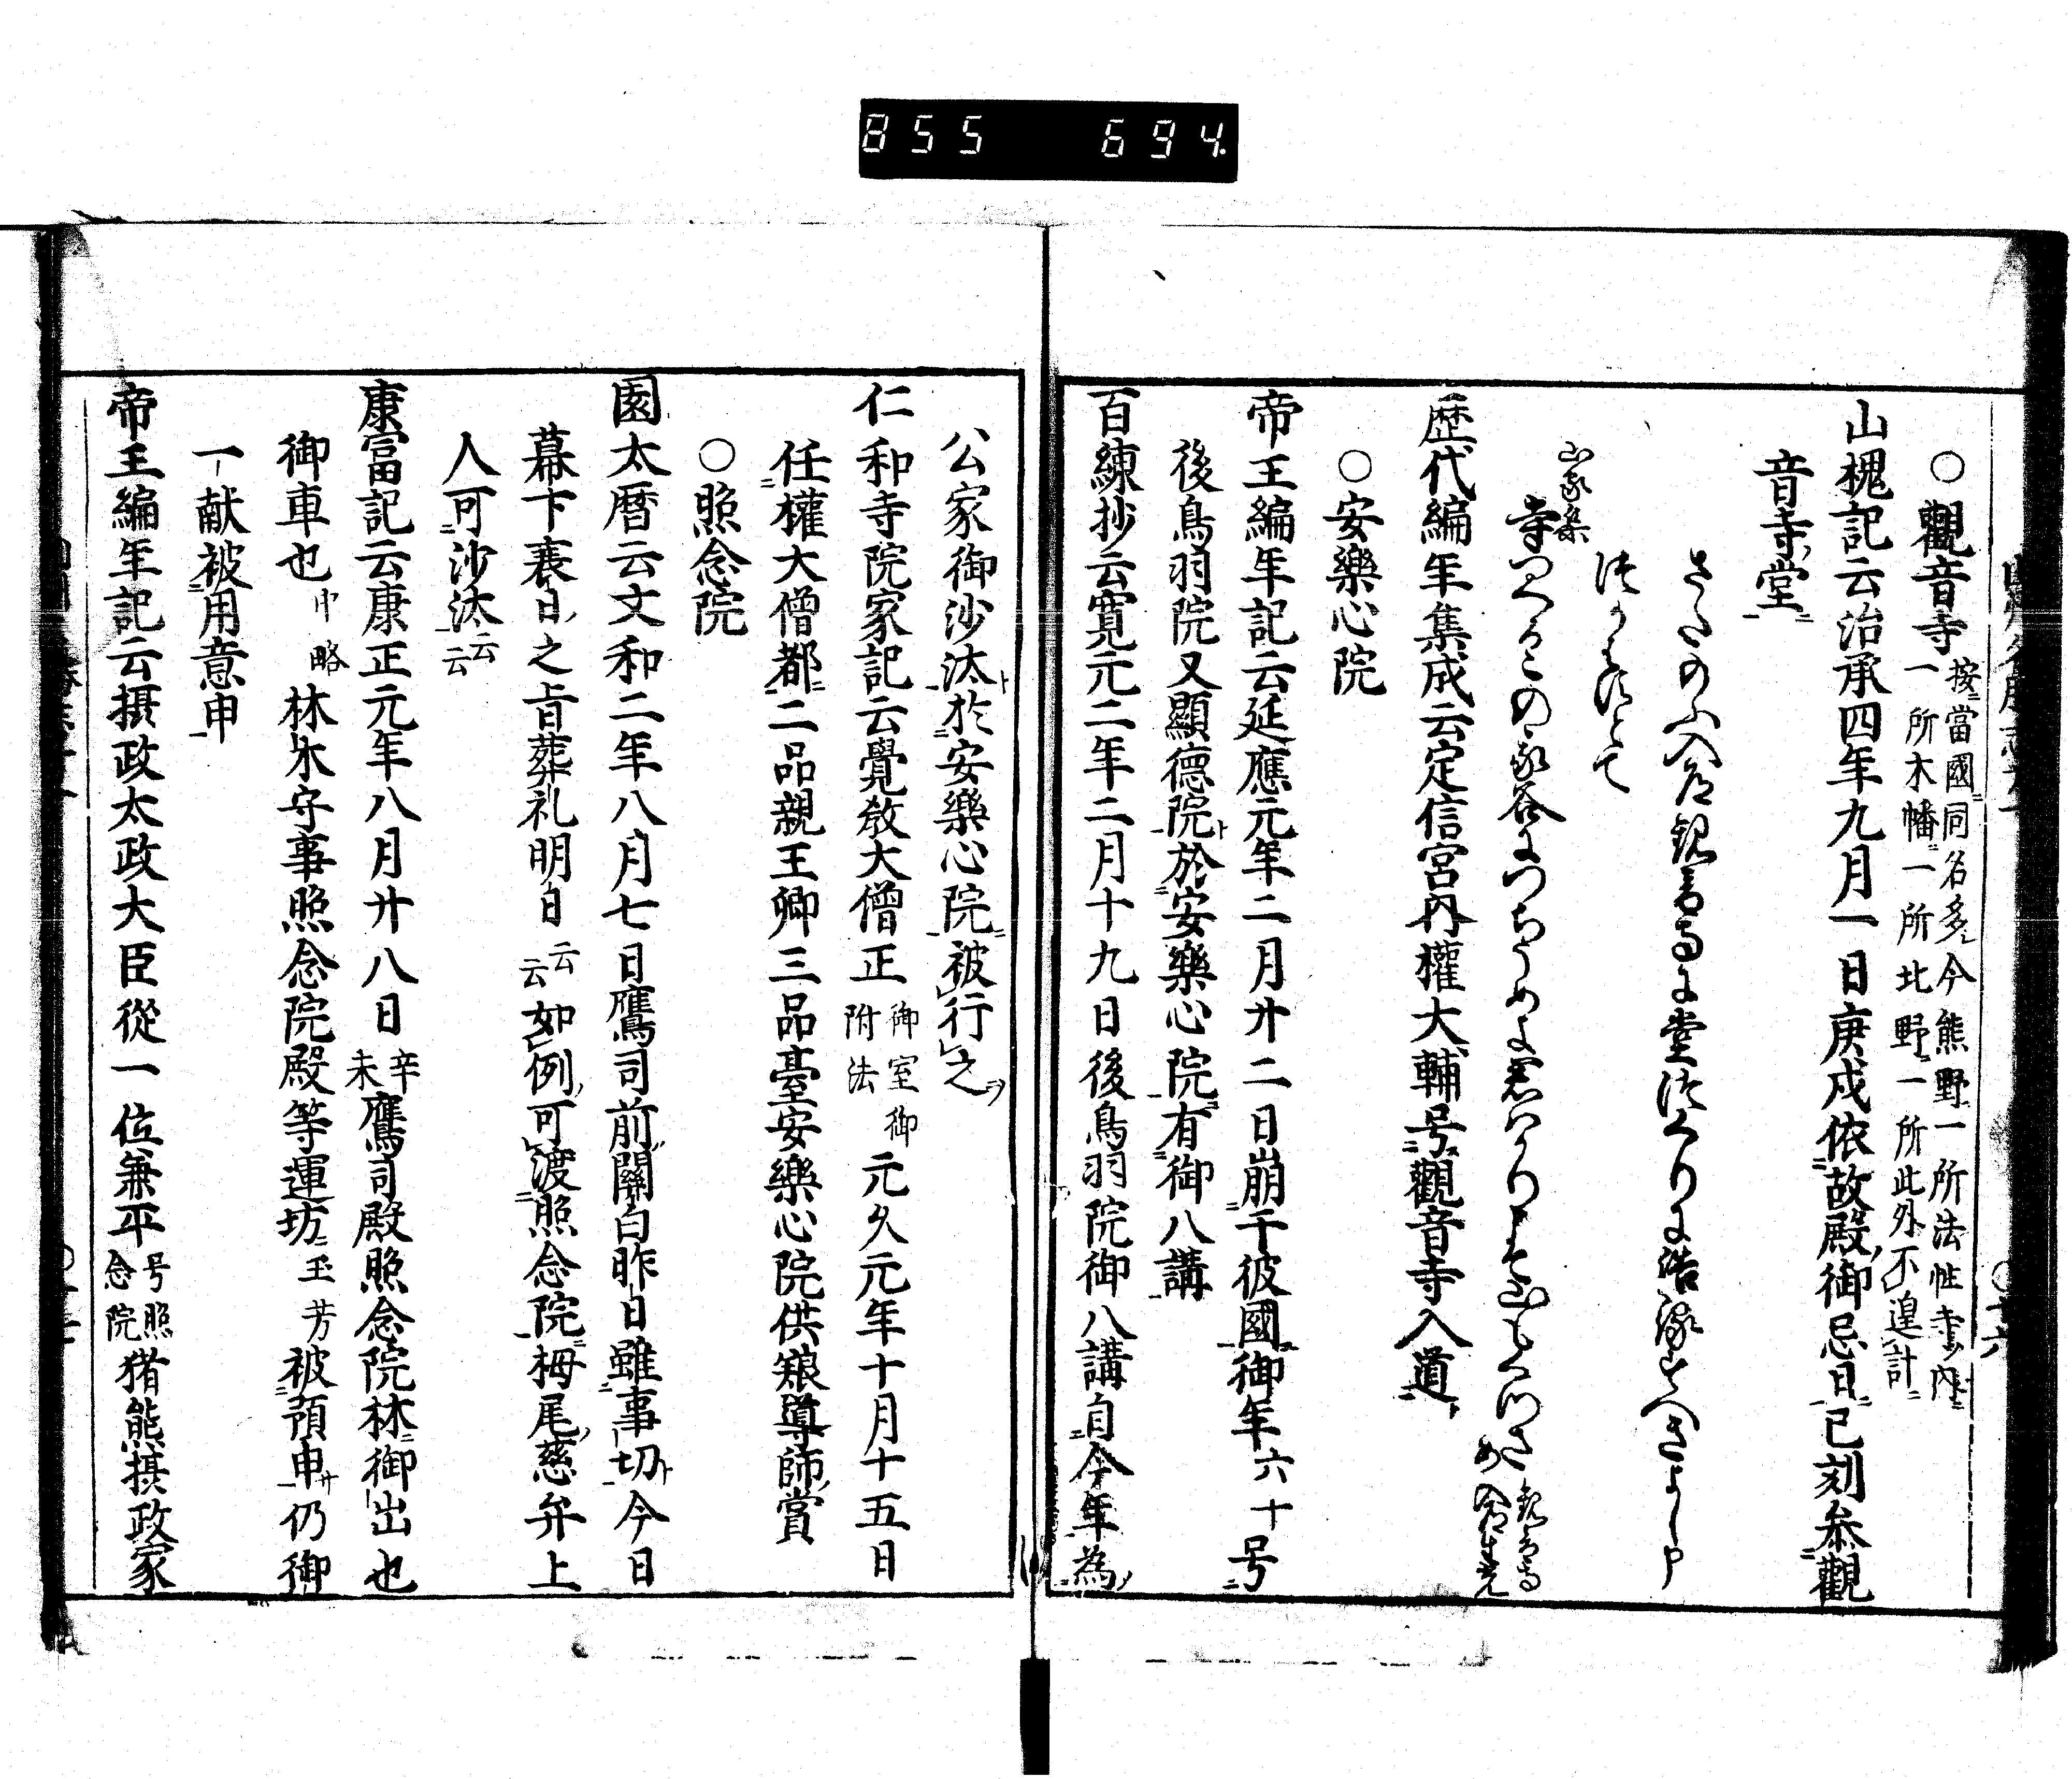 855 694.
○觀音寺 按當國同名多今熊野一所法性寺内
一所木幡一所北野一所此外不遑計
山槐記云治承四年九月一日庚戌依故殿御忌日巳刻参觀
音寺堂
さたのふ入道観音寺に堂つくりに結縁すへきよし申
つかはすとて
山家集
寺つくるこの我谷につちうめよ君はかりこそ山もくつさめ 観音寺入道生光
歴代編年集成云定信宮内權大輔号觀音寺入道
○安樂心院
帝王編年記云延應元年二月廿二日崩于彼國御年六十号
後鳥羽院又顯德院於安樂心院有御八講
百練抄云寛元二年二月十九日後鳥羽院御八講自今年為
公家御沙汰於安樂心院被行之
仁和寺院家記云覺敎大僧正 御室御附法 元久元年十月十五日
任權大僧都二品親王卿三品臺安樂心院供粮導師賞
○照念院
園太暦云文和二年八月七日鷹司前關白昨日雖事切今日
幕下表日之旨葬礼明日云云如例可渡照念院栂尾慈弁上
人可沙汰云云
康冨記云康正元年八月廿八日辛未鷹司殿照念院林御出也
御車也中略林氷守事照念院殿等運坊玉芳被預申仍御
一献被用意申
帝王編年記云摂政太政大臣從一位兼平 号照念院 猪熊摂政家